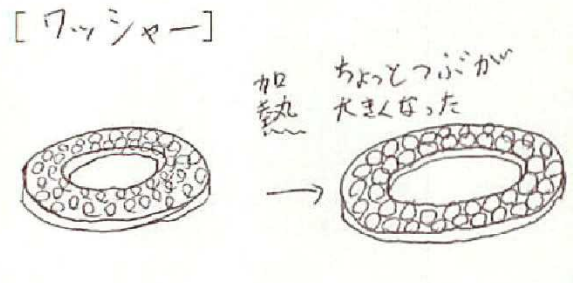 [ワッシャー]
加熱
ちょっとつぶが
大きくなった